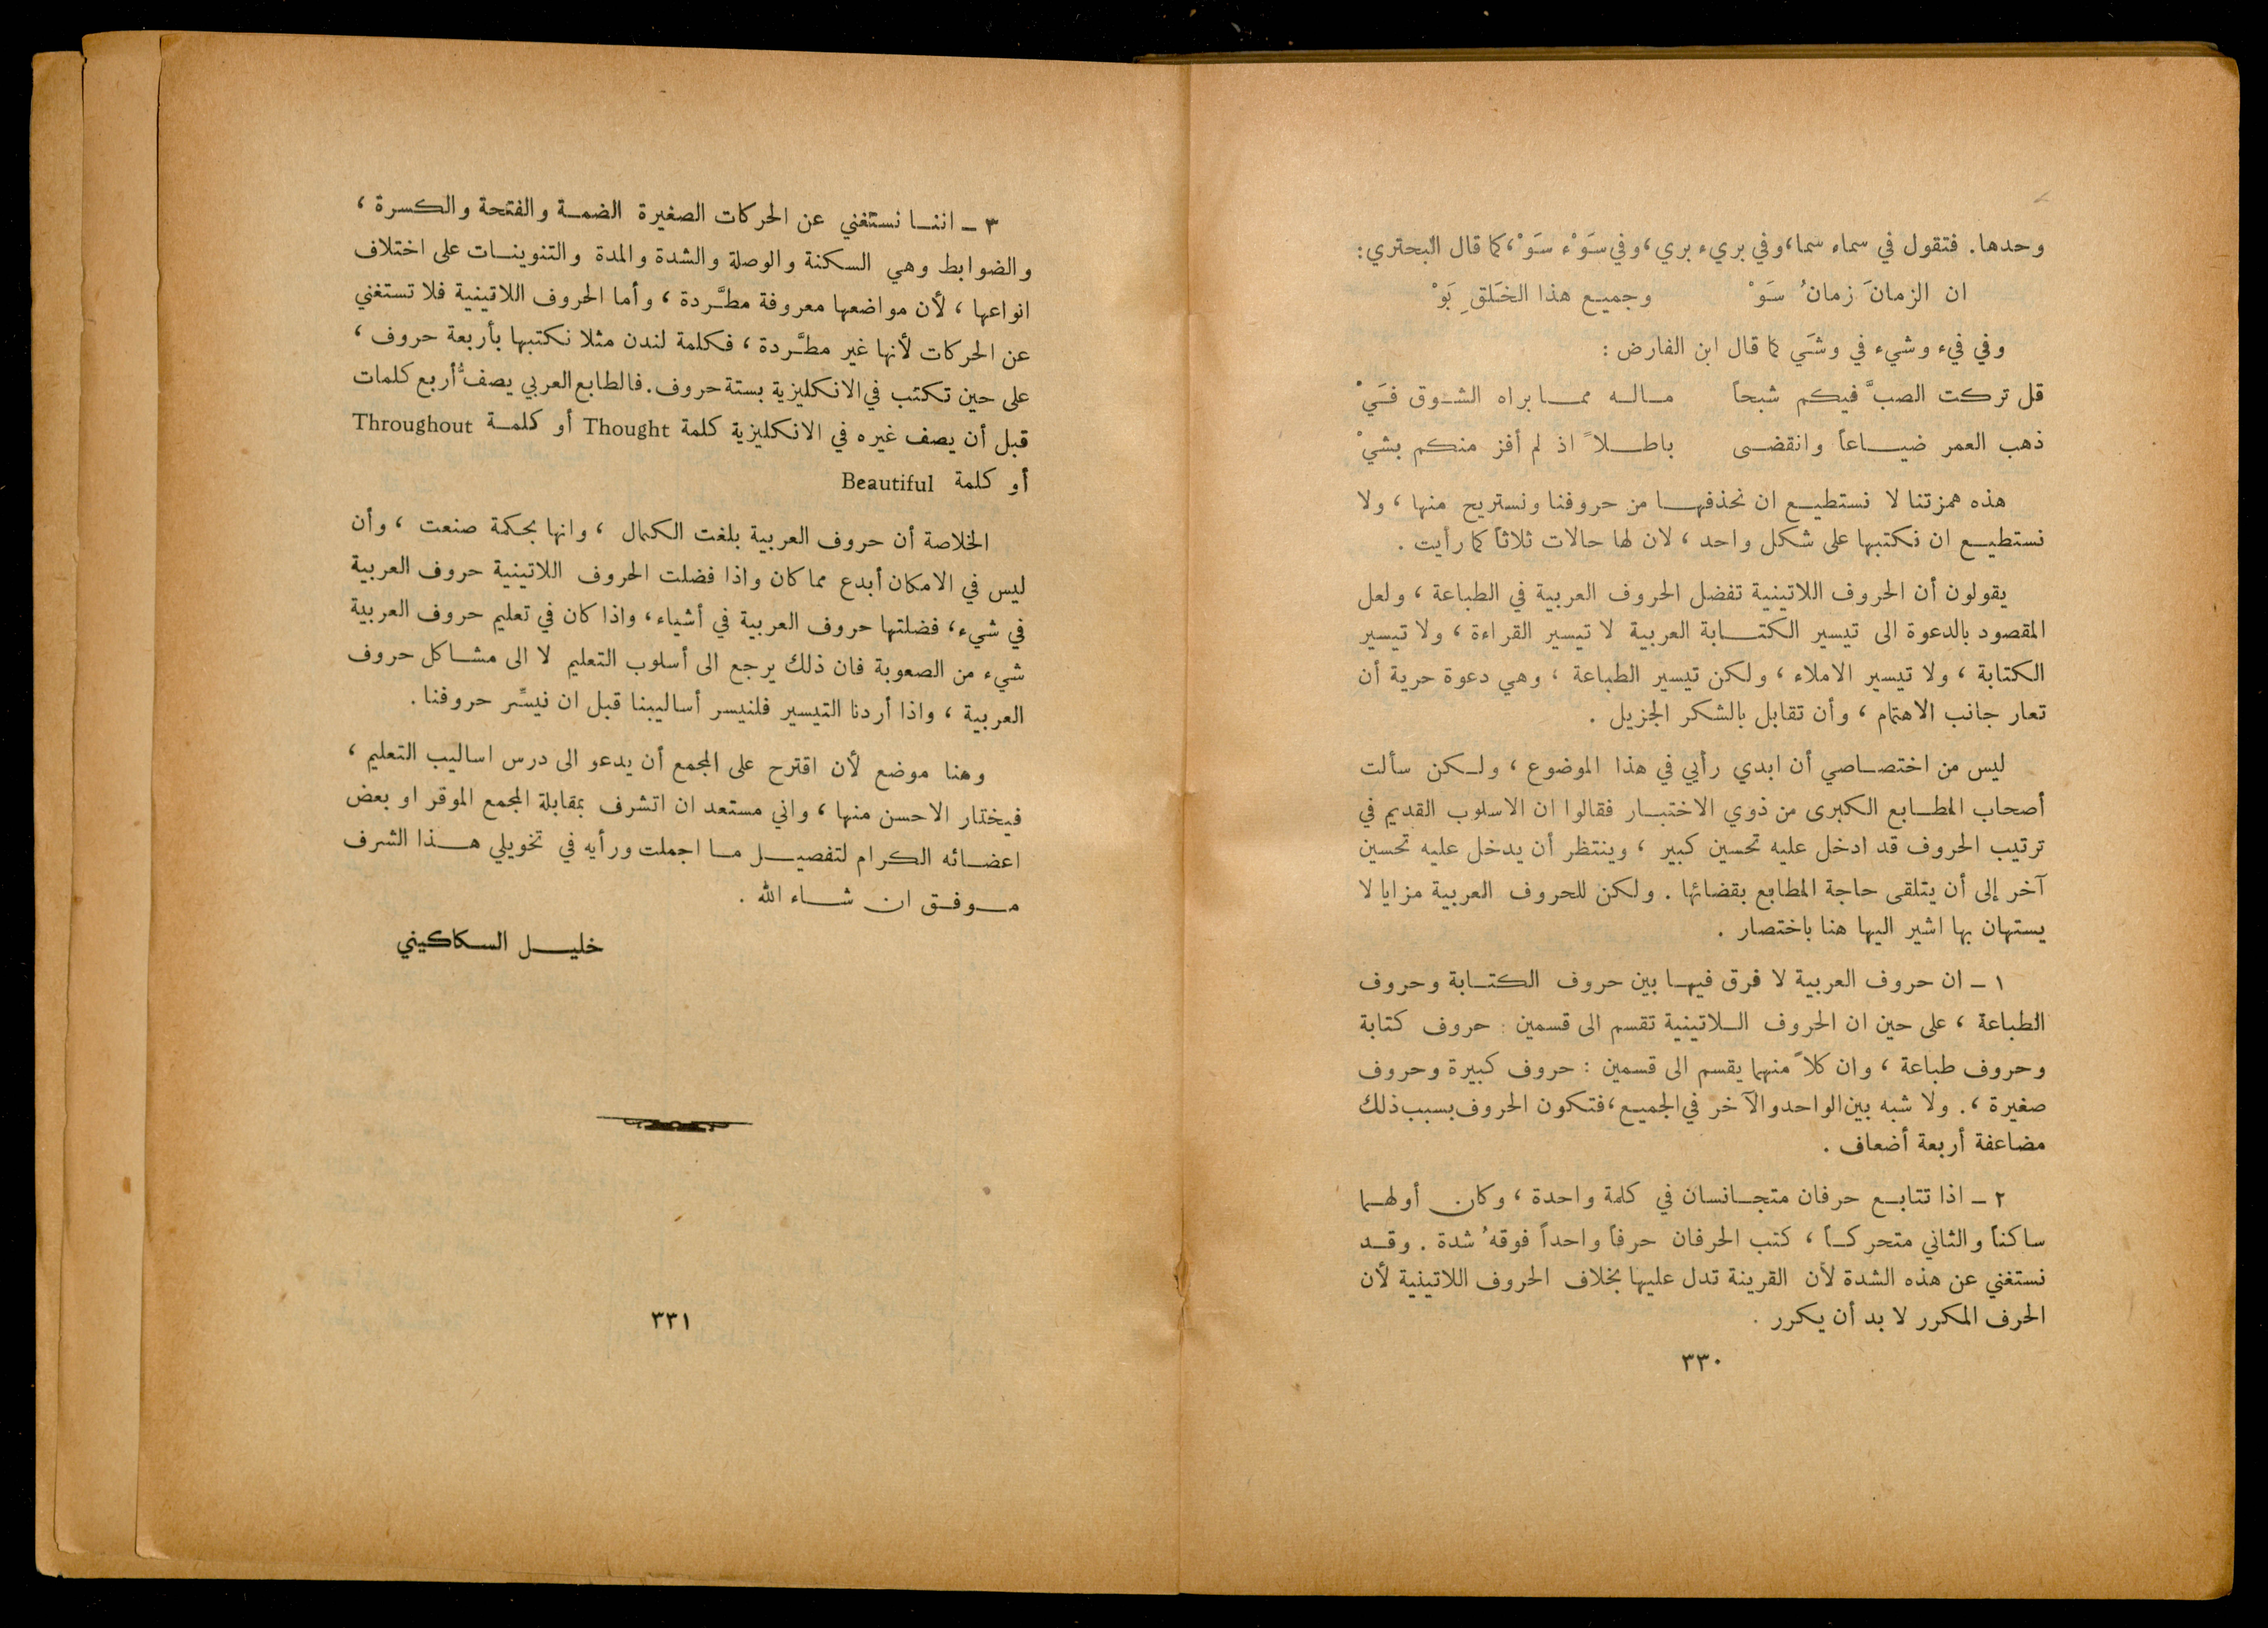 وحدها. فتقول في سماء سما، وفي بريء بري، وفي سَوْء سَوْ، كما قال البحتري:
ان الزمانَ زمانُ سَوْ وجميع هذا الخَلقِ بَوْ
وفي فيء وشيء في وشَي كما قال ابن الفارض :
قل تركت الصبَّ فيكم شبحاً ماله مما براه الشوق فَيْ
ذهب العمر ضياعاً وانقضى باطلاً اذ لم أفز منكم بشيْ
هذه همزتنا لا نستطيع ان نحذفها من حروفنا ونستريح منها ، ولا
نستطيع ان نكتبها على شكل واحد ، لان لها حالات ثلاثاً كما رأيت .
يقولون أن الحروف اللاتينية تفضل الحروف العربية في الطباعة ، ولعل
المقصود بالدعوة الى تيسير الكتابة العربية لا تيسير القراءة ، ولا تيسير
الكتابة ، ولا تيسير الاملاء ، ولكن تيسير الطباعة ، وهي دعوة حرية أن
تعار جانب الاهتمام ، وأن تقابل بالشكر الجزيل .
ليس من اختصاصي أن ابدي رأيي في هذا الموضوع ، ولكن سألت
أصحاب المطابع الكبرى من ذوي الاختبار فقالوا ان الاسلوب القديم في
ترتيب الحروف قد ادخل عليه تحسين كبير ، وينتظر أن يدخل عليه تحسين
آخر إلى أن يتلقى حاجة المطابع بقضائها . ولكن للحروف العربية مزايا لا
يستهان بها اشير اليها هنا باختصار .
١ ـ ان حروف العربية لا فرق فيها بين حروف الكتابة وحروف
الطباعة ، على حين ان الحروف اللاتينية تقسم الى قسمين : حروف كتابة
وحروف طباعة ، وان كلاً منهما يقسم الى قسمين : حروف كبيرة وحروف
صغيرة ،. ولا شبه بين الواحد والآخر في الجميع، فتكون الحروف بسبب ذلك
مضاعفة أربعة أضعاف .
٢ ـ اذا تتابع حرفان متجانسان في كلمة واحدة ، وكان أولهما
ساكناً والثاني متحركاً ، كتب الحرفان حرفاً واحداً فوقهُ شدة . وقد
نستغني عن هذه الشدة لأن القرينة تدل عليها بخلاف الحروف اللاتينية لأن
الحرف المكرر لا بد أن يكرر .
٣٣٠
٣ ـ اننا نستغني عن الحركات الصغيرة الضمة والفتحة والكسرة ،
والضوابط وهي السكنة والوصلة والشدة والمدة والتنوينات على اختلاف
انواعها ، لأن مواضعها معروفة مطَّردة ، وأما الحروف اللاتينية فلا تستغني
عن الحركات لأنها غير مطَّردة ، فكلمة لندن مثلا نكتبها بأربعة حروف ،
على حين تكتب في الانكليزية بستة حروف. فالطابع العربي يصفُّ أربع كلمات
قبل أن يصف غيره في الانكليزية كلمة Thought أو كلمة Throughout
أو كلمة Beautiful
الخلاصة أن حروف العربية بلغت الكمال ، وانها بحكمة صنعت ، وأن
ليس في الامكان أبدع مما كان واذا فضلت الحروف اللاتينية حروف العربية
في شيء، فضلتها حروف العربية في أشياء، واذا كان في تعليم حروف العربية
شيء من الصعوبة فان ذلك يرجع الى أسلوب التعليم لا الى مشاكل حروف
العربية ، واذا أردنا التيسير فلنيسر أساليبنا قبل ان نيسِّر حروفنا.
وهنا موضع لأن اقترح على المجمع أن يدعو الى درس اساليب التعليم ،
فيختار الاحسن منها ، واني مستعد ان اتشرف بمقابلة المجمع الموقر او بعض
اعضائه الكرام لتفصيل ما اجملت ورأيه في تخويلي هذا الشرف
موفق ان شاء الله .
خليل السكاكيني
٣٣١